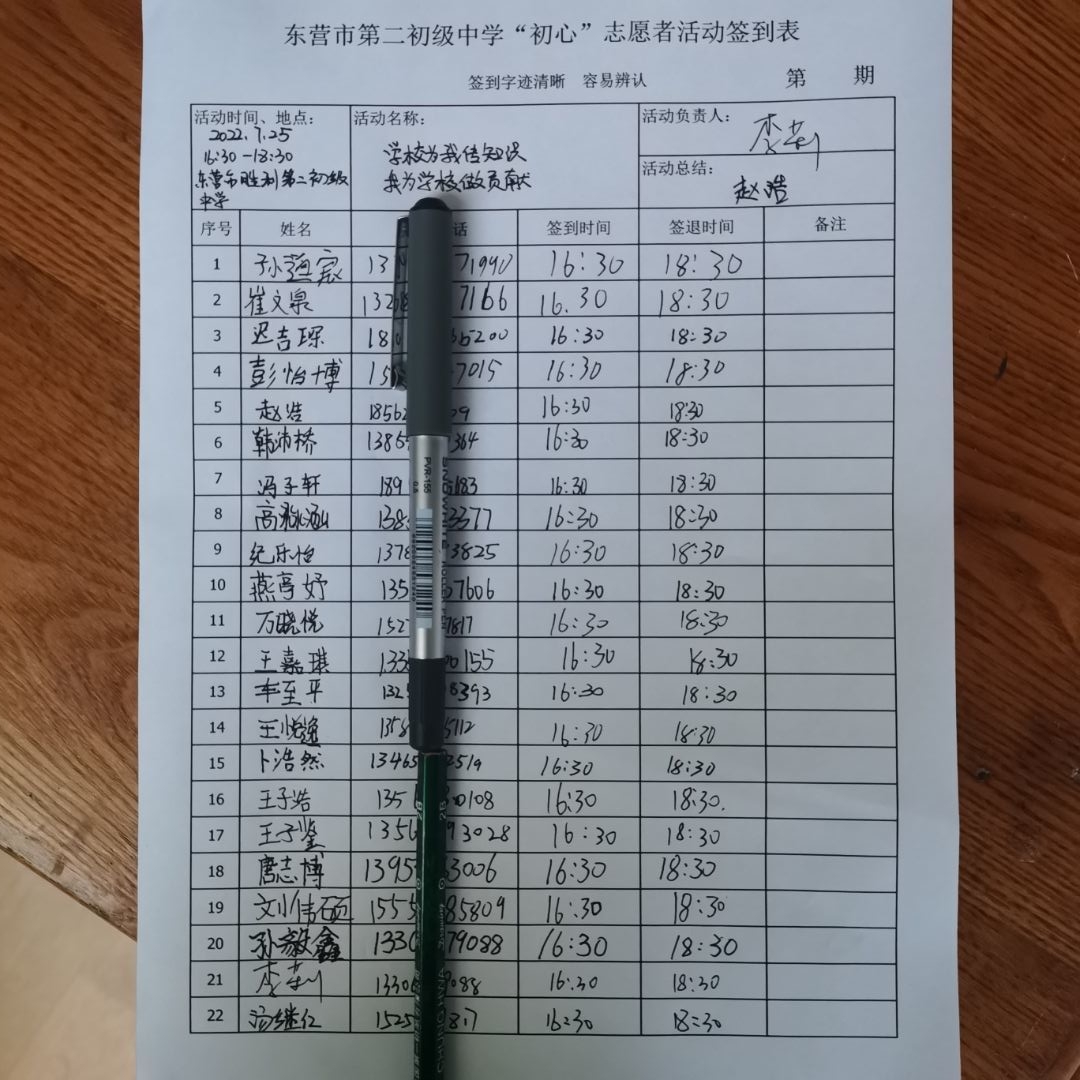 东营市第二初级中学“初心”志愿者活动签到表
签到字迹清晰 容易辨认 第 期
活动时间、地点：
2022.7.25
16:30-18:30
东营市胜利第二初级
中学
活动名称：
学校为我传知识
我为学校做贡献
活动负责人：
李莉
活动总结：
赵浩
序号 姓名 话 签到时间 签退时间 备注
1 13 71990 16:30 18:30
2 崔文泉 132 7166 16.30 18:30
3 迟吉琛 18 5200 16:30 18:30
4 彭怡博 15 7015 16:30 18:30
5 赵浩 1856 09 16:30 18:30
6 韩沛桥 1386 364 16:30 18:30
7 冯子轩 189 183 16:30 18:30
8 138 3377 16:30 18:30
9 纪乐怡 1378 3825 16:30 18:30
10 燕亭妤 135 7606 16:30 18:30
11 万晓悦 152 7817 16:30 18:30
12 王嘉琪 133 0155 16:30 18:30
13 李至平 132 8393 16:30 18:30
14 135 5112 16:30 18:30
15 卜浩然 13465 2519 16:30 18:30
16 王子浩 135 0108 16:30 18:30.
17 王子鉴 1356 93028 16:30 18:30
18 唐志博 1395 3006 16:30 18:30
19 刘伟硕 1555 85809 16:30 18:30
20 孙毅鑫 1330 79088 16:30 18:30
21 李莉 1330 9088 16:30 18:30
22 汤继红 1525 16:30 18:30
PVR-155
0.5
SNOWHITE
2B
CHUNGHWA